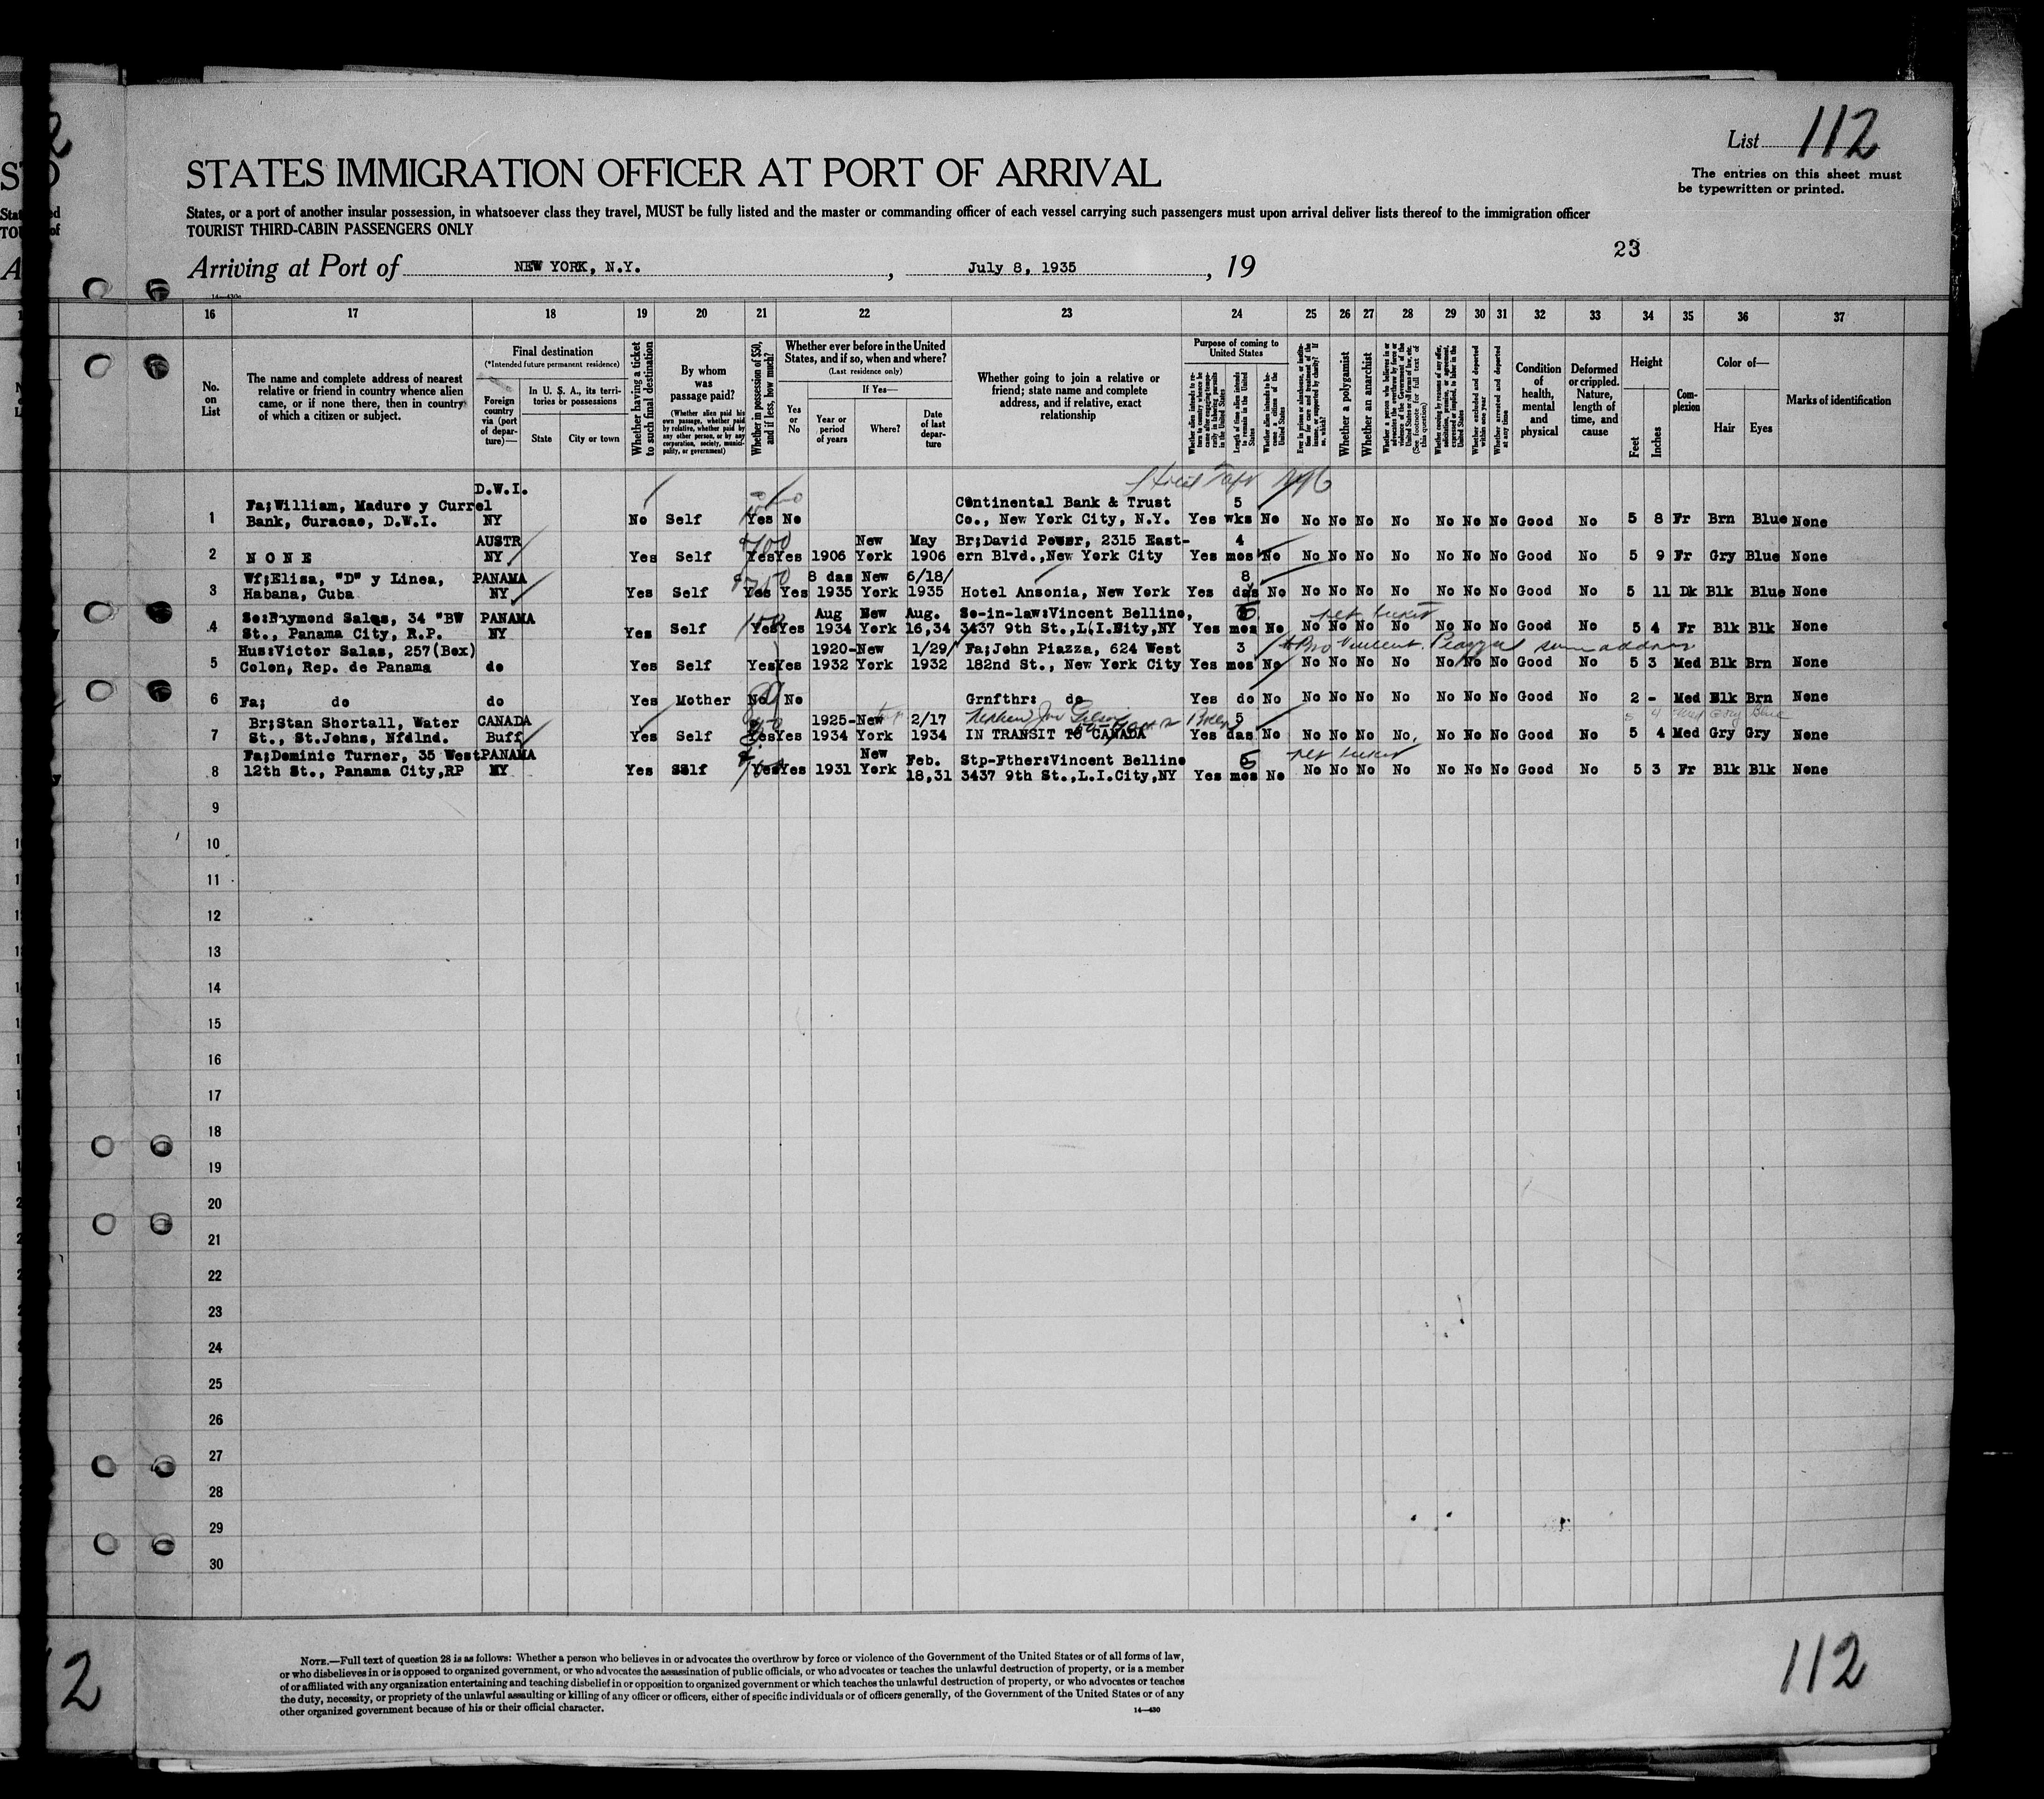 List 112
The entries on this sheet must
be typewritten or printed.
STATES IMMIGRATION OFFICER AT PORT OF ARRIVAL
States, or a port of another insular possession, in whatsoever class they travel, MUST be fully listed and the master or commanding officer of each vessel carrying such passengers must upon arrival deliver lists thereof to the immigration officer
TOURIST THIRD-CABIN PASSENGERS ONLY
23
Arriving at Port of NEW YORK, N.Y. , July 8, 1935 , 19
16 17 18 19 20 21 22 23 24 25 26 27 28 29 30 31 32 33 34 35 36 37
No. on List
The name and complete address of nearest
relative or friend in country whence alien
came, or if none there, then in country
of which a citizen or subject.
Final destination
(*Intended future permanent residence)
Foreign country via (port of depar-ture)—
In U. S. A., its terri-
tories or possessions
State City or town
Whether having a ticket to such final destination
By whom was passage paid?
(Whether alien paid his own passage, whether paid by relative, whether paid by any other person, or by any corporation, society, munici-pality, or government)
Whether in possession of $50, and if less, how much?
Whether ever before in the United
States, and if so, when and where?
(Last residence only)
Yes or No
If Yes—
Year or period of years
Where?
Date of last depar-ture
Whether going to join a relative or
friend; state name and complete
address, and if relative, exact
relationship
Purpose of coming to
United States
Whether a polygamist
Whether an anarchist
Whether excluded and deported within one year
Whether arrested and deported at any time
Condition of health, mental and physical
Deformed or crippled. Nature, length of time, and cause
Height
Feet Inches
Com-plexion
Color of—
Hair Eyes
Marks of identification
D.W.I.
Fa;William, Maduro y Currel Continental Bank & Trust 5
1 Bank, Curacao, D.W.I. NY No Self Yes No Co., New York City, N.Y. Yes wks No No No No No No No No Good No 5 8 Fr Brn Blue None
AUSTR New May Br;David Power, 2315 East- 4
2 N O N E NY Yes Self Yes Yes 1906 York 1906 ern Blvd.,New York City Yes mos No No No No No No No No Good No 5 9 Fr Gry Blue None
Wf;Elisa, "D" y Linea, PANAMA 8 das New 6/18/ 8
3 Habana, Cuba NY Yes Self Yes Yes 1935 York 1935 Hotel Ansonia, New York Yes das No No No No No No No No Good No 5 11 Dk Blk Blue None
So:Raymond Salas, 34 "BW PANAMA Aug New Aug. So-in-law:Vincent Belline, 6
4 St., Panama City, R.P. NY Yes Self Yes Yes 1934 York 16,34 3437 9th St.,L.I.City,NY Yes mos No No No No No No No No Good No 5 4 Fr Blk Blk None
Hus:Victor Salas, 257(Box) 1920-New 1/29/ Fa;John Piazza, 624 West 3
5 Colon, Rep. de Panama do Yes Self Yes Yes 1932 York 1932 182nd St., New York City Yes mos No No No No No No No No Good No 5 3 Med Blk Brn None
6 Fa; do do Yes Mother No No Grnfthr: do Yes do No No No No No No No No Good No 2 - Med Blk Brn None
Br;Stan Shortall, Water CANADA 1925-New 2/17 5
7 St., St.Johns, Nfdlnd. Buff Yes Self Yes Yes 1934 York 1934 IN TRANSIT TO CANADA Yes das No No No No No. No No No Good No 5 4 Med Gry Gry None
Fa;Dominic Turner, 35 West PANAMA New Feb. Stp-Fther:Vincent Belline 6
8 12th St., Panama City,RP NY Yes Self Yes Yes 1931 York 18,31 3437 9th St.,L.I.City,NY Yes mos No No No No No No No No Good No 5 3 Fr Blk Blk None
9
10
11
12
13
14
15
16
17
18
19
20
21
22
23
24
25
26
27
28
29
30
NOTE.—Full text of question 28 is as follows: Whether a person who believes in or advocates the overthrow by force or violence of the Government of the United States or of all forms of law,
or who disbelieves in or is opposed to organized government, or who advocates the assassination of public officials, or who advocates or teaches the unlawful destruction of property, or is a member
of or affiliated with any organization entertaining and teaching disbelief in or opposition to organized government or which teaches the unlawful destruction of property, or who advocates or teaches
the duty, necessity, or propriety of the unlawful assaulting or killing of any officer or officers, either of specific individuals or of officers generally, of the Government of the United States or of any
other organized government because of his or their official character.
14—430
112